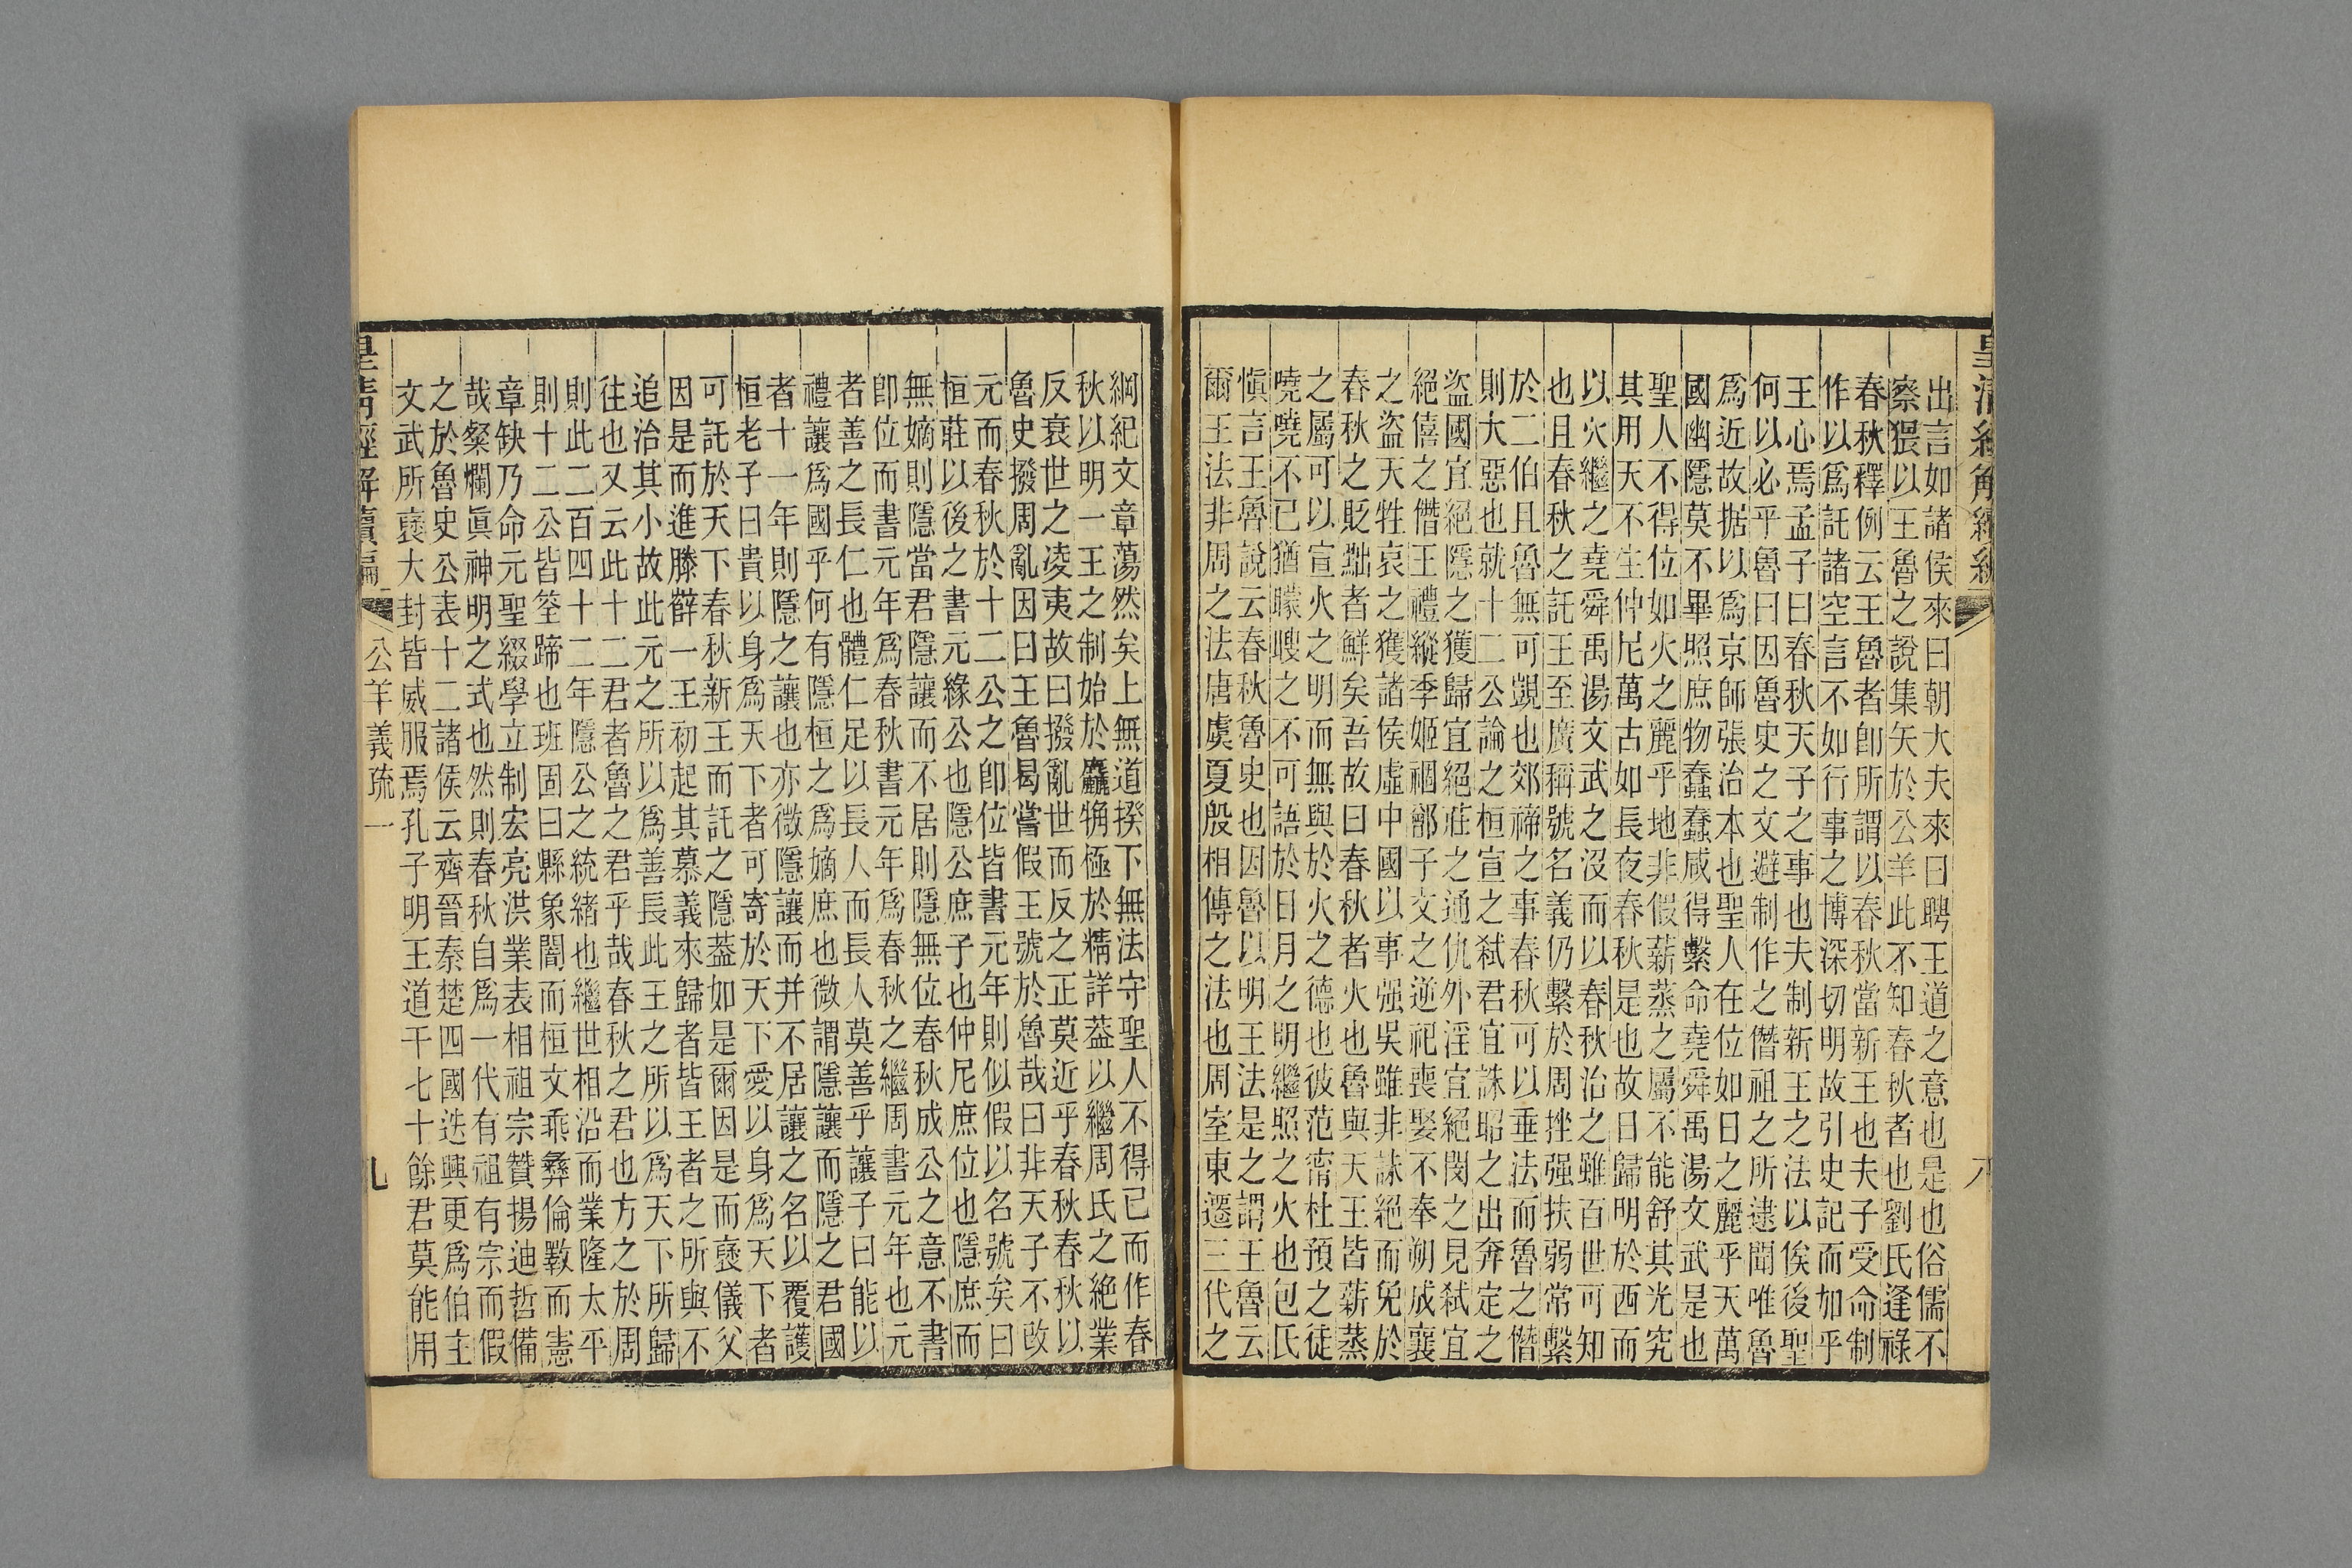 皇清經解續編
出言如諸侯來曰朝大夫來曰聘王道之意也是也俗儒不
察猥以王魯之說集矢於公羊此不知春秋者也劉氏逢祿
春秋釋例云王魯者卽所謂以春秋當新王也夫子受命制
作以爲託諸空言不如行事之博深切明故引史記而加乎
王心焉孟子曰春秋天子之事也夫制新王之法以俟後聖
何以必乎魯曰因魯史之文避制作之僭祖之所逮聞唯魯
爲近故据以爲京師張治本也聖人在位如日之麗乎天萬
國幽隱莫不畢照庶物蠢蠢咸得繫命堯舜禹湯文武是也
聖人不得位如火之麗乎地非假薪蒸之屬不能舒其光究
其用天不生仲尼萬古如長夜春秋是也故曰歸明於西而
以火繼之堯舜禹湯文武之沒而以春秋治之雖百世可知
也且春秋之託王至廣稱號名義仍繫於周挫强扶弱常繫
於二伯且魯無可覬也郊禘之事春秋可以垂法而魯之僭
則大惡也就十二公論之桓宣之弒君宜誅昭之出奔定之
盜國宜絕隱之獲歸宜絕莊之通仇外淫宜絕閔之見弒宜
絕僖之僭王禮縱季姬禍鄫子文之逆祀喪娶不奉朔成襄
之盜天牲哀之獲諸侯虛中國以事强吳雖非誅絕而免於
春秋之貶黜者鮮矣吾故曰春秋者火也魯與天王皆薪蒸
之屬可以宣火之明而無與於火之德也彼范甯杜預之徒
嘵嘵不已猶矇瞍之不可語於日月之明繼照之火也包氏
愼言王魯說云春秋魯史也因魯以明王法是之謂王魯云
爾王法非周之法唐虞夏殷相傳之法也周室東遷三代之
綱紀文章蕩然矣上無道揆下無法守聖人不得已而作春
秋以明一王之制始於麤觕極於精詳葢以繼周氏之絕業
反衰世之凌夷故曰撥亂世而反之正莫近乎春秋春秋以
魯史撥周亂因曰王魯曷嘗假王號於魯哉曰非天子不改
元而春秋於十二公之卽位皆書元年則似假以名號矣曰
桓莊以後之書元緣公也隱公庶子也仲尼庶位也隱庶而
無嫡則隱當君隱讓而不居則隱無位春秋成公之意不書
卽位而書元年爲春秋書元年爲春秋之繼周書元年也元
者善之長仁也體仁足以長人而長人莫善乎讓子曰能以
禮讓爲國乎何有隱桓之爲嫡庶也微謂隱讓而隱之君國
者十一年則隱之讓也亦微隱讓而并不居讓之名以覆護
桓老子曰貴以身爲天下者可寄於天下愛以身爲天下者
可託於天下春秋新王而託之隱葢如是爾因是而襃儀父
因是而進滕薛一王初起其慕義來歸者皆王者之所與不
追治其小故此元之所以爲善長此王之所以爲天下所歸
往也又云此十二君者魯之君乎哉春秋之君也方之於周
則此二百四十二年隱公之統緒也繼世相沿而業隆太平
則十二公皆筌蹄也班固曰縣象闇而桓文乖彝倫斁而憲
章缺乃命元聖綴學立制宏亮洪業表相祖宗贊揚迪哲備
哉粲爛眞神明之式也然則春秋自爲一代有祖有宗而假
之於魯史公表十二諸侯云齊晉秦楚四國迭興更爲伯主
文武所襃大封皆威服焉孔子明王道干七十餘君莫能用
皇清經解續編
公羊義疏一
九